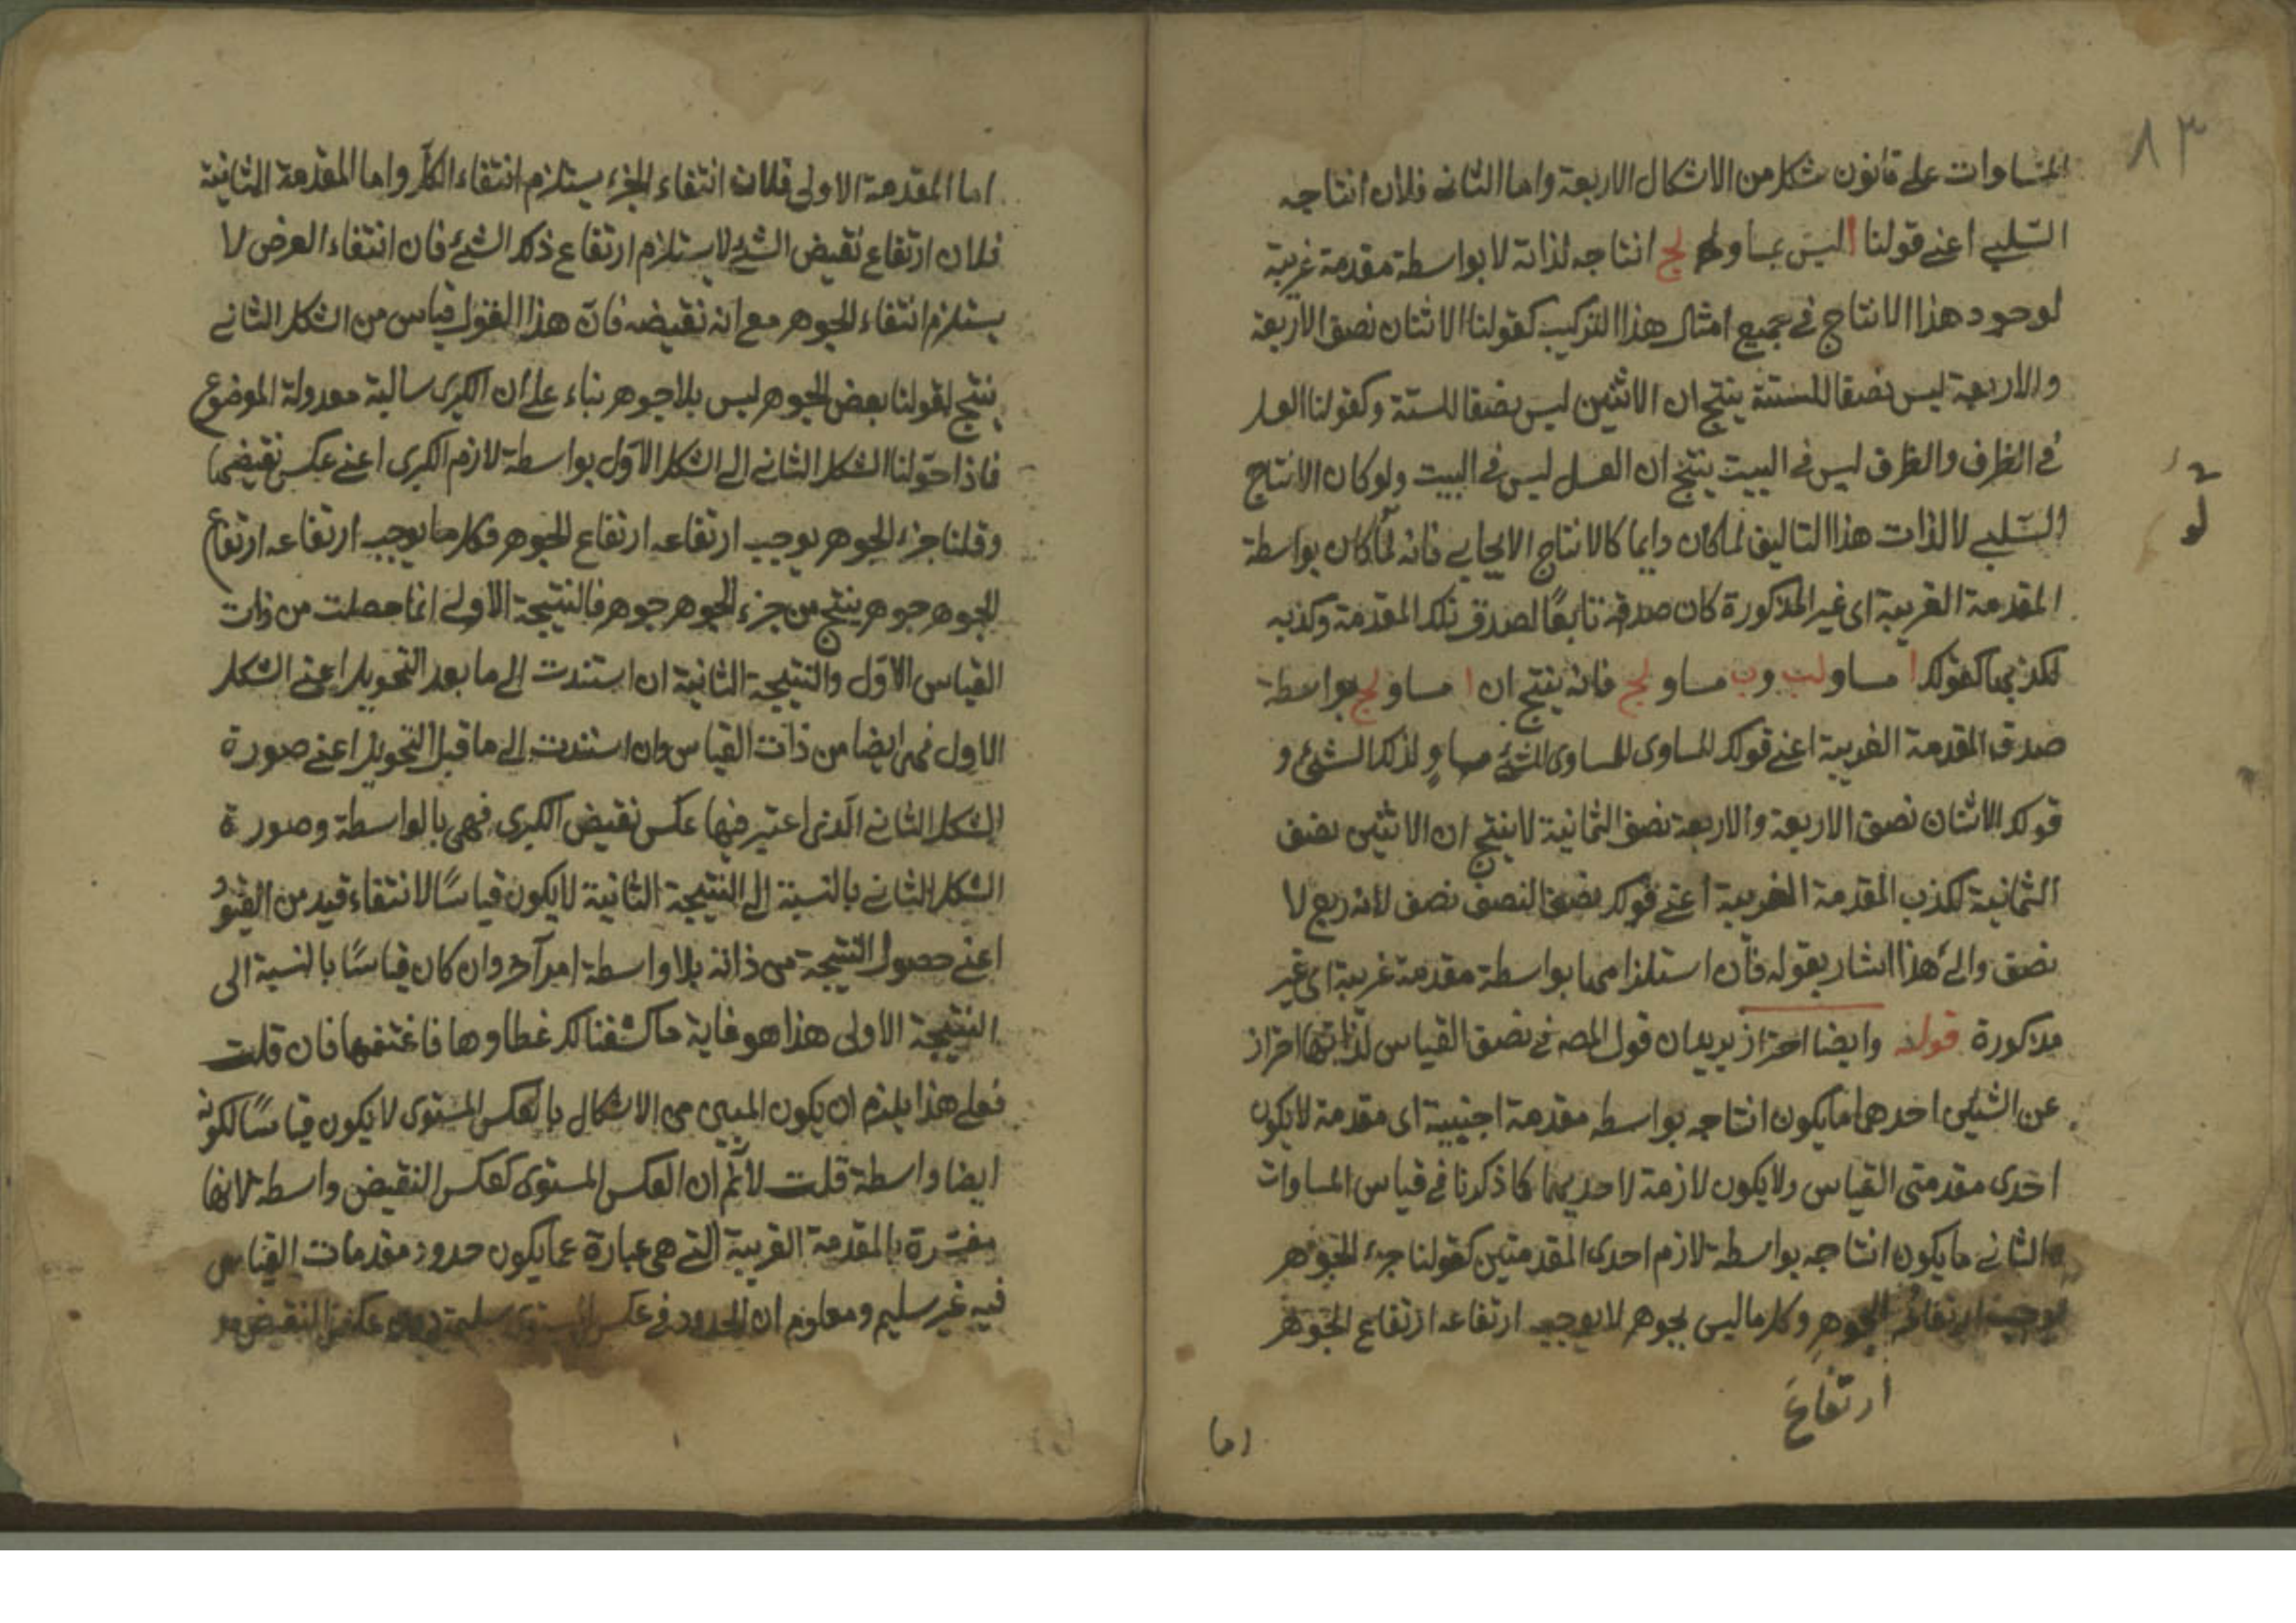 ٨٣
المساوات على قانون شكل من الاشكال الاربعة واما الثانى فلان انتاجه
السّلبى اعنے قولنا ا ليس بمساو لج انتاجه لذاته لا بواسطة مقدمة غريبة
لوجود هذا الانتاج فى جميع امثال هذا التركيب كقولنا الاثنان نصف الاربعة
والاربعة ليس نصفا للستة ينتج ان الاثنين ليس نصفا للستة وكقولنا العسل
فى الظرف والظرف ليس فى البيت ينتج ان العسل ليس فى البيت ولو كان الانتاج
السّلبى لا لذات هذا التاليف لما كان دايما كالانتاج الايجابى فانه لمّا كان بواسطة
المقدمة الغريبة اى غير المذكورة كان صدقه تابعًا لصدق تلك المقدمة وكذبه
لكذبها كقولك ا مساو لب وب مساو لج فانه ينتج ان ا مساو لج بواسطة
صدق المقدمة الغريبة اعنے قولك المساوى للمساوى للشئ مساوٍ لذلك الشئ و
قولك الاثنان نصف الاربعة والاربعة نصف الثمانية لا ينتج ان الاثنين نصف
الثمانية لكذب المقدمة الغريبة اعنے قولك نصف النصف نصف لانه ربع لا
نصف والى هذا اشار بقوله فان استلزامها بواسطة مقدمة غريبة اى غير
مذكورة قوله وايضا احتراز يريد ان قول المصه فى نصف القياس لذاتها احتراز
عن الشيئين احدهما ما يكون انتاجه بواسطه مقدمة اجنبية اى مقدمة لا يكون
احدى مقدمتى القياس ولا يكون لازمة لاحديهما كما ذكرنا فى قياس المساوات
والثانى ما يكون انتاجه بواسطة لازم احدى المقدمتين كقولنا جزء الجوهر
يوجب ارتفاعه الجوهر وكل ما ليس بجوهر لا يوجب ارتفاعه ارتفاع الجوهر
ارتفاعَ
اما المقدمة الاولى فلان انتفاء الجزء يستلزم انتفاء الكلّ واما المقدمة الثانية
فلان ارتفاع نقيض الشئ لا يستلزم ارتفاع ذلك الشئ فان انتفاء العرض لا
يستلزم انتفاء الجوهر مع انه نقيضه فانّ هذا القول قياس من الشكل الثانى
ينتج لقولنا بعض الجوهر ليس بلا جوهر بناء على ان الكبرى سالبة معدولة الموضوع
فاذا حوّلنا الشكل الثانى الى الشكل الاوّل بواسطة لازم الكبرى اعنے عكس نقيضها
وقلنا جزء الجوهر يوجب ارتفاعه ارتفاع الجوهر وكل ما يوجب ارتفاعه ارتفاع
الجوهر جوهر ينتج من جزء الجوهر جوهر فالنتيجة الاولى انما حصلت من ذات
القياس الاوّل والنتيجة الثانية ان استندت الى ما بعد التحويل اعنے الشكل
الاول فهى ايضا من ذات القياس وان استندت الى ما قبل التحويل اعنے صورة
الشكل الثانى الّذى اعتبر فيها عكس نقيض الكبرى فهى بالواسطة وصورة
الشكل الثانى بالنسبة الى النتيجة الثانية لا يكون قياسًا لانتفاء قيد من القيود
اعنے حصول النتيجة من ذاته بلا واسطة امر آخر وان كان قياسًا بالنسبة الى
النتيجة الاولى هذا هو غاية ما كشفنا لك غطاوها فاغتنمها فان قلت
فعلى هذا يلزم ان يكون المبين من الاشكال بالعكس المستوى لا يكون قياسًا لكونه
ايضا واسطة قلت لا نم ان العكس المستوى كعكس النقيض واسطه لانها
مفسّرة بالمقدمة الغريبة التى هى عبارة عما يكون حدود مقدمات القياس
فيه غير سليم ومعلوم ان الحدود فى عكس المستوى سليمة دون عكس النقيض